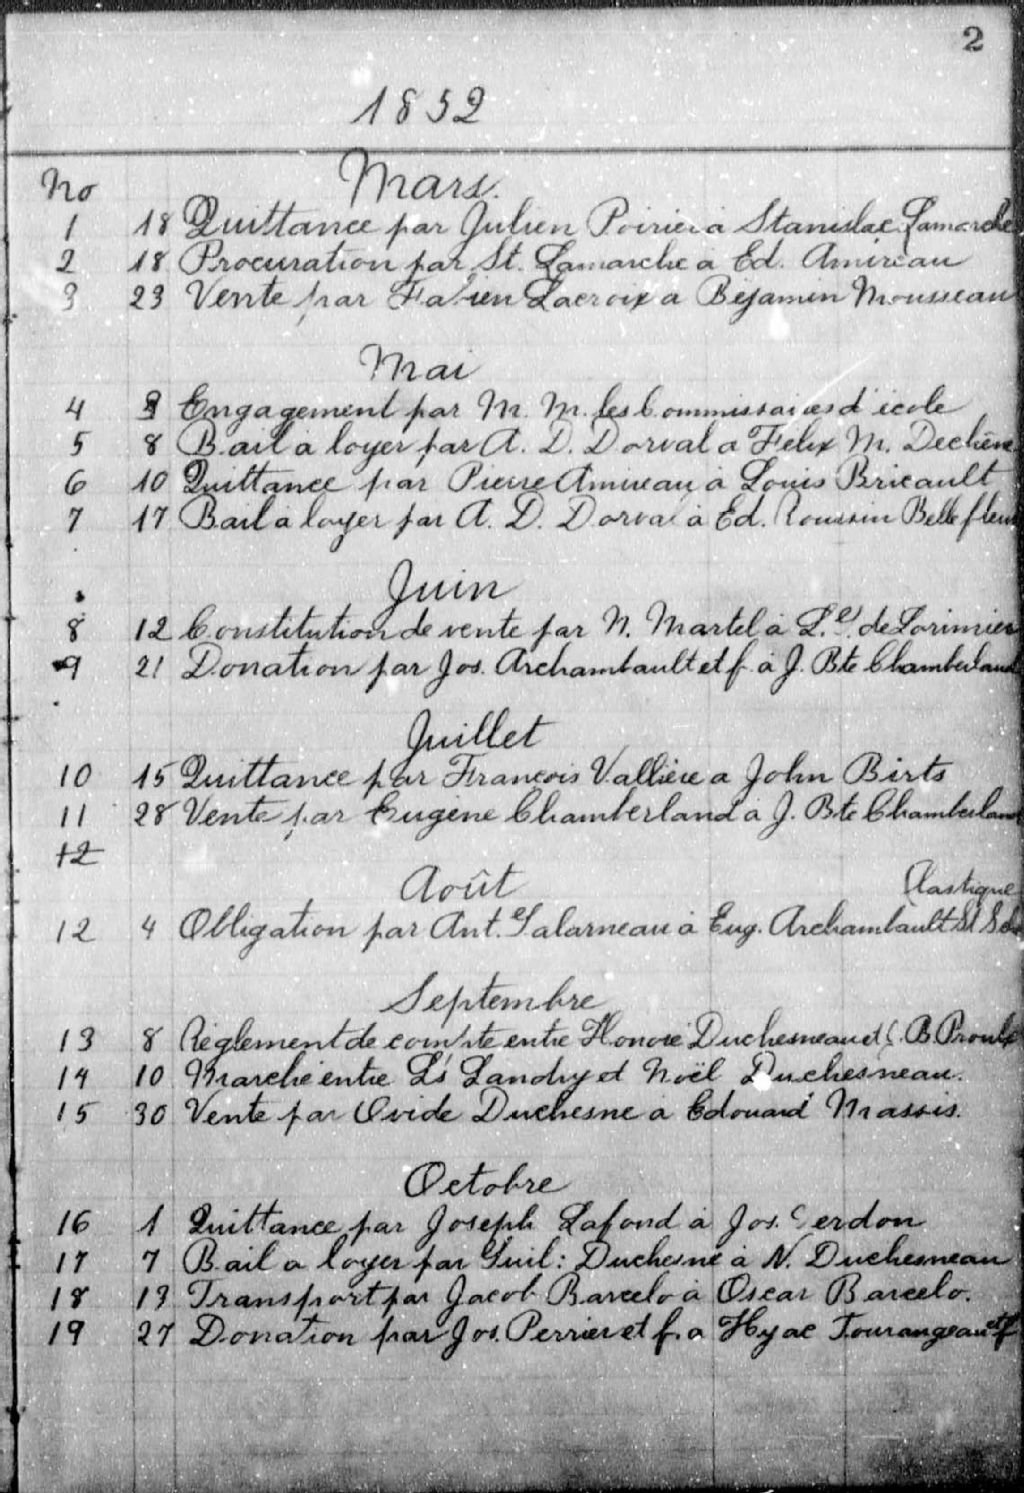 2
1852
No Mars.
1 18 Quittance par Julien Poirier à Stanislas Lamarche
2 18 Procuration par St. Lamarche a Ed. Amireau
3 23 Vente par Fabien Lacroix a Béjamin Mousseau
Mai
4 Engagement par M. M. les Commissaires d'école
5 8 Bail a loyer par A. D. Dorval a Felix M. Dechêne
6 10 Quittance par Pierre Amireau à Louis Bricault
7 17 Bail a loyer par A. D. Dorval à Ed. Roussin Bellefleur
Juin
8 12 Constitution de vente par N. Martel à de Lorimier
9 21 Donation par Jos. Archambault et f. à J. Bte Chamberland
Juillet
10 15 Quittance par Francois Vallière a John Birts
11 28 Vente par Eugène Chamberland à J. Bte Chamberland
12
Août
12 4 Obligation par Ant. Galarneau à Eug. Archambault St Sch
lastique
Septembre
13 8 Règlement de compte entre Honoré Duchesneau et B. Proulx
14 10 Marché entre Ls Landry et Noël Duchesneau.
15 30 Vente par Ovide Duchesne à Edouard Massis.
Octobre
16 1 Quittance par Joseph Lafond à Jos. Verdon
17 7 Bail a loyer par Guil: Duchesne à N. Duchesneau
18 13 Transport par Jacob Barcelo à Oscar Barcelo.
19 27 Donation par Jos. Perrier et f. a Hyac Tourangeau et f